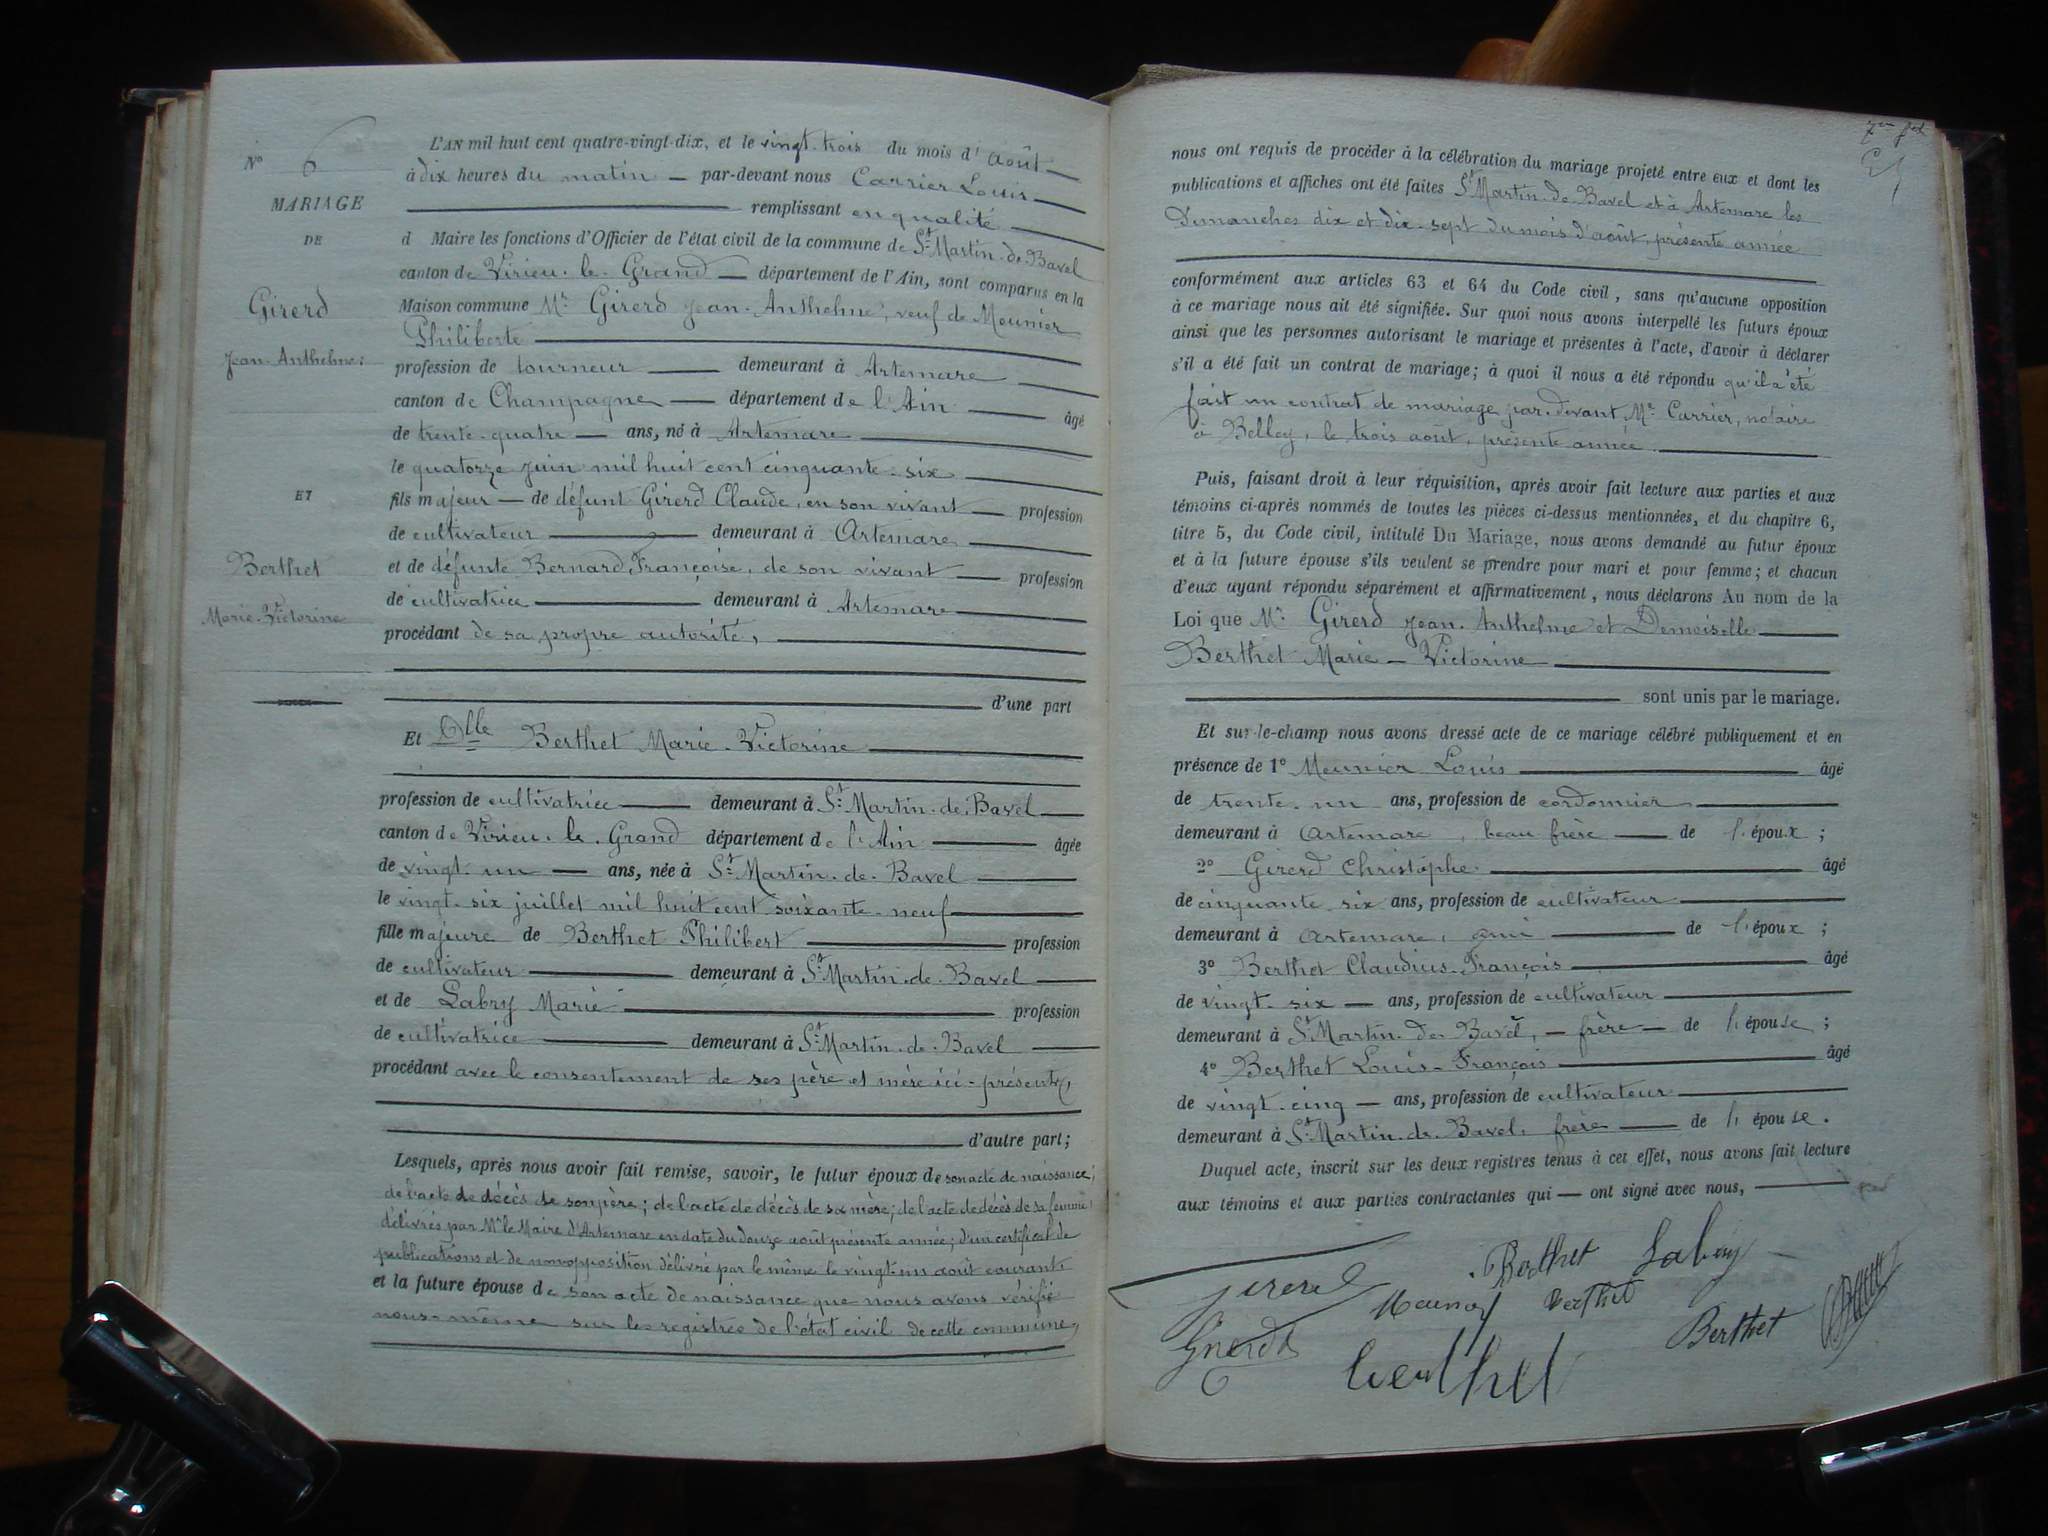 N° 6
MARIAGE
DE
Girerd
Jean-Anthelme
ET
Berthet
Marie-Victorine
L'AN mil huit cent quatre-vingt-dix, et le vingt-trois du mois d'août
à dix heures du matin par-devant nous Carrier Louis
remplissant en qualité
d Maire les fonctions d'Officier de l'état civil de la commune de St Martin-de-Bavel
canton de Virieu-le-Grand département de l'Ain, sont comparus en la
Maison commune Mr Girerd Jean-Anthelme, veuf de Meunier
Philiberte
profession de tourneur demeurant à Artemare
canton de Champagne département de l'Ain âgé
de trente-quatre ans, né à Artemare
le quatorze juin mil huit cent cinquante-six
fils majeur de défunt Girerd Claude, en son vivant profession
de cultivateur demeurant à Artemare
et de défunte Bernard Françoise, de son vivant profession
de cultivatrice demeurant à Artemare
procédant de sa propre autorité,
d'une part
Et Dlle Berthet Marie-Victorine
profession de cultivatrice demeurant à St Martin-de-Bavel
canton de Virieu-le-Grand département de l'Ain âgée
de vingt-un ans, née à St Martin-de-Bavel
le vingt-six juillet mil huit cent soixante-neuf
fille majeure de Berthet Philibert profession
de cultivateur demeurant à St Martin-de-Bavel
et de Labry Marie profession
de cultivatrice demeurant à St Martin-de-Bavel
procédant avec le consentement de ses père et mère ici-présents,
d'autre part;
Lesquels, après nous avoir fait remise, savoir, le futur époux de son acte de naissance;
de l'acte de décès de son père; de l'acte de décès de sa mère; de l'acte de décès de sa femme;
délivrés par Mr le Maire d'Artemare en date du douze août présente année; d'un certificat de
publications et de non opposition délivré par le même le vingt-un août courant.
et la future épouse de son acte de naissance que nous avons vérifié
nous-même sur les registres de l'état civil de cette commune,
nous ont requis de procéder à la célébration du mariage projeté entre eux et dont les
publications et affiches ont été faites St Martin-de-Bavel et à Artemare les
Dimanches dix et dix-sept du mois d'août, présente année
conformément aux articles 63 et 64 du Code civil, sans qu'aucune opposition
à ce mariage nous ait été signifiée. Sur quoi nous avons interpellé les futurs époux
ainsi que les personnes autorisant le mariage et présentes à l'acte, d'avoir à déclarer
s'il a été fait un contrat de mariage; à quoi il nous a été répondu qu'il a été
fait un contrat de mariage par-devant Me Carrier, notaire
à Belley, le trois août, présente année.
Puis, faisant droit à leur réquisition, après avoir fait lecture aux parties et aux
témoins ci-après nommés de toutes les pièces ci-dessus mentionnées, et du chapitre 6,
titre 5, du Code civil, intitulé Du Mariage, nous avons demandé au futur époux
et à la future épouse s'ils veulent se prendre pour mari et pour femme; et chacun
d'eux ayant répondu séparément et affirmativement, nous déclarons Au nom de la
Loi que Mr Girerd Jean-Anthelme et Demoiselle
Berthet Marie-Victorine
sont unis par le mariage.
Et sur-le-champ nous avons dressé acte de ce mariage célébré publiquement et en
présence de 1° Meunier Louis âgé
de trente-un ans, profession de cordonnier
demeurant à Artemare, beau frère de l'époux;
2° Girerd Christophe âgé
de cinquante-six ans, profession de cultivateur
demeurant à Artemare, ami de l'époux;
3° Berthet Claudius-François âgé
de vingt-six ans, profession de cultivateur
demeurant à St Martin-de-Bavel, frère de l'épouse;
4° Berthet Louis-François âgé
de vingt-cinq ans, profession de cultivateur
demeurant à St Martin-de-Bavel, frère de l'épouse.
Duquel acte, inscrit sur les deux registres tenus à cet effet, nous avons fait lecture
aux témoins et aux parties contractantes qui ont signé avec nous,
Berthet Labry
Girerd Berthet
Girerd Berthet
Berthet